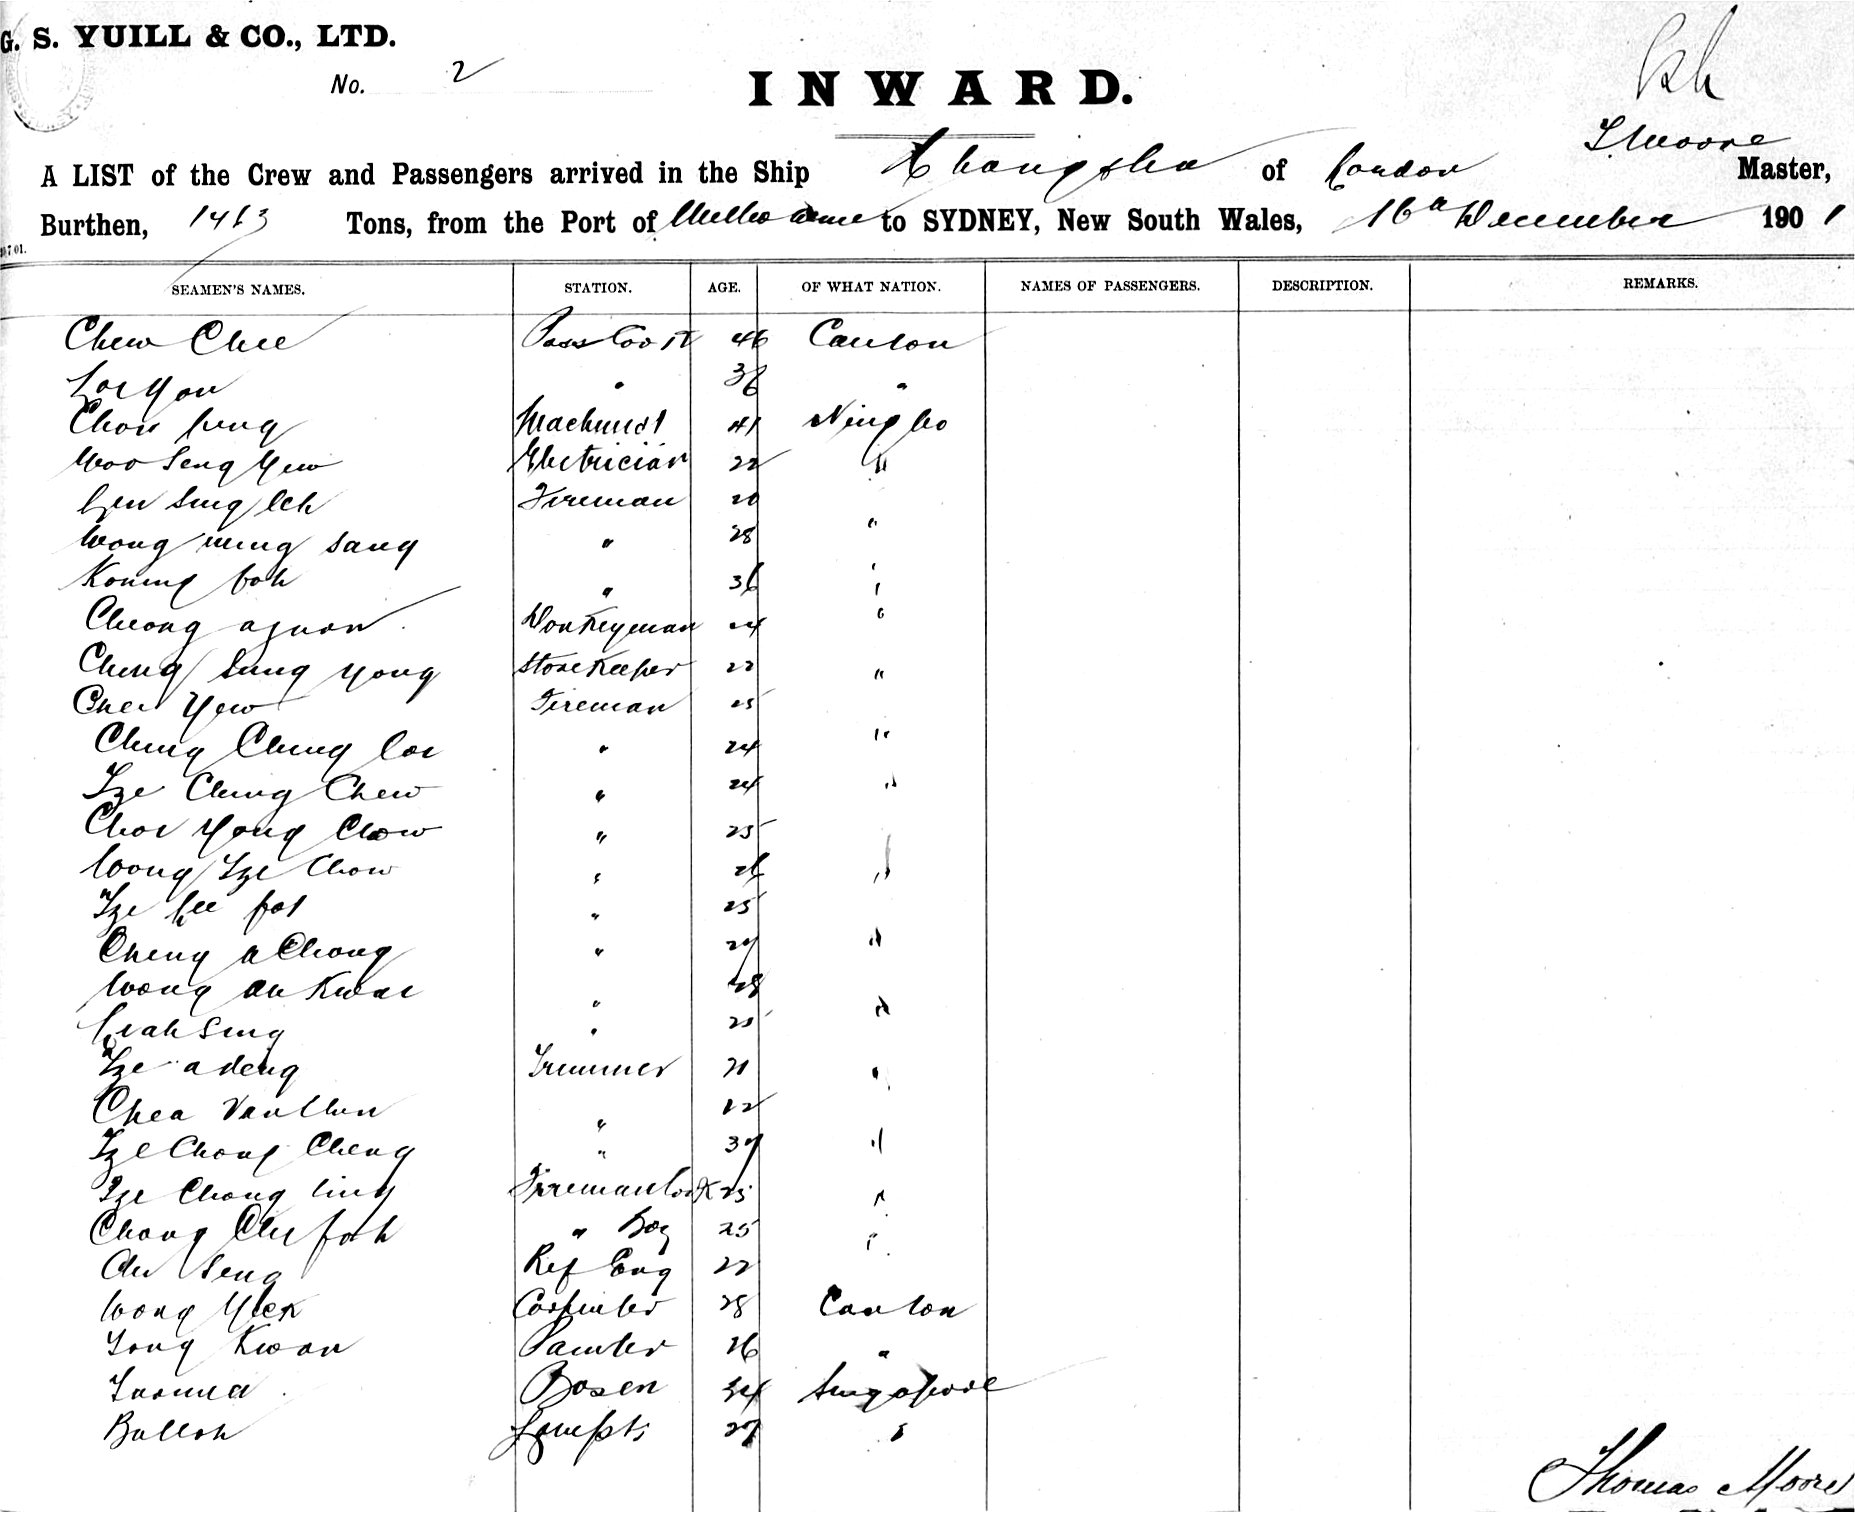 G. S. YUILL & CO., LTD.
No. 2
INWARD.
T Moore
A LIST of the Crew and Passengers arrived in the Ship Changsha of London Master,
Burthen, 1463 Tons, from the Port of Melbourne to SYDNEY, New South Wales, 16th December 1901
SEAMEN'S NAMES. STATION. AGE. OF WHAT NATION. NAMES OF PASSENGERS. DESCRIPTION. REMARKS.
Chew Chee Pass Cook 46 Canton
" 36 "
Machinist 41 Ningbo
Woo Seng Yew Electrician 22 "
Fireman 20
Wong ming Sang " 28 "
" 36 "
Donkeyman 24 "
Cheng Sung Yong Storekeeper 22 "
Chei Yew Fireman 25
Ching Ching " 24 "
Tze Ching Chew " 24 "
Choi Yong Chow " 25
Wong Tze Chow " 26 "
Tze " 25
Cheng a Chong " 24 "
Wong au Kwai " 28
Sing " 25 "
Tze adeng Trimmer 21 "
Chea "
Tze Chong Cheng " 39 "
Tze Chong ling Fireman Cook 25 "
Chong Che foh " Boy 25 "
Seng Ref Eng 22
Wong Yick Carpenter 28 Canton
Tong Kwan Painter 26 "
Bosen 34 Singapore
Balloh Lampts 27 "
Thomas Moore